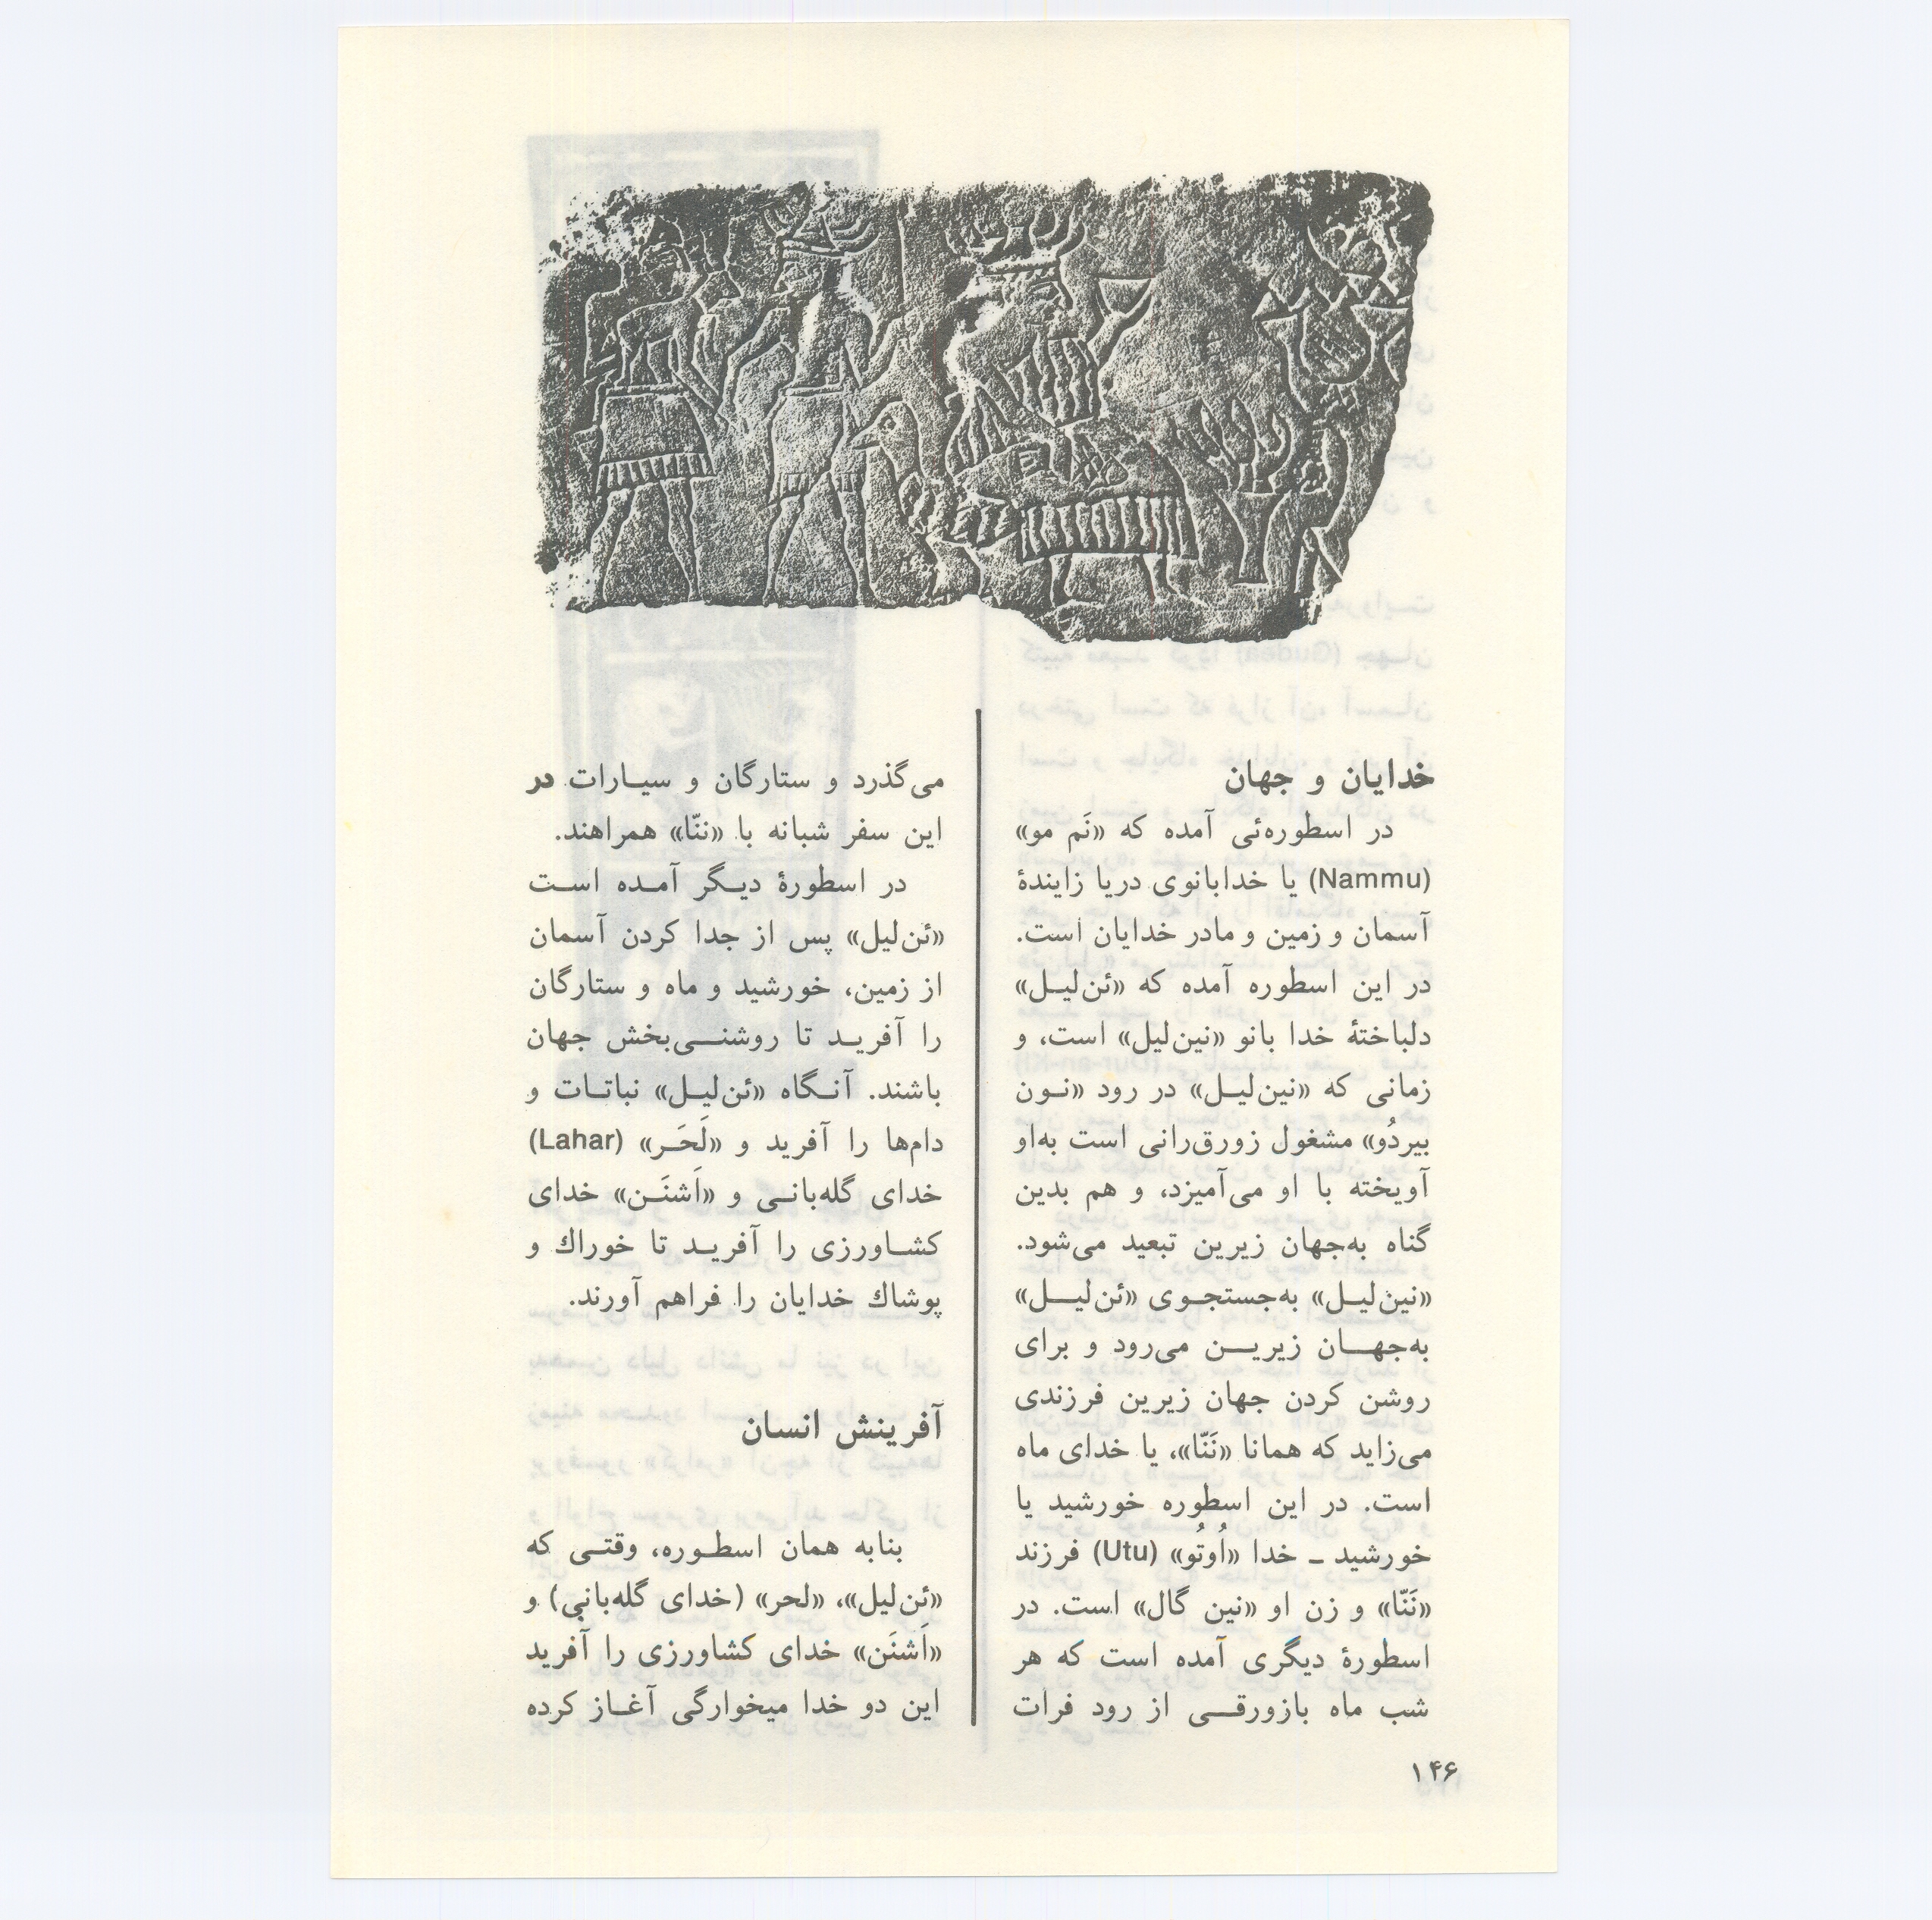 خدایان و جهان
در اسطوره‌ئی آمده که «نَم مو»
(Nammu) یا خدابانوی دریا زایندهٔ
آسمان و زمین و مادر خدایان است.
در این اسطوره آمده که «ئن‌لیـل»
دلباختهٔ خدا بانو «نین‌لیل» است، و
زمانی که «نین‌لیـل» در رود «نـون
بیردُو» مشغول زورق‌رانی است به‌او
آویخته با او می‌آمیزد، و هم بدین
گناه به‌جهان زیرین تبعید می‌شود.
«نین‌لیـل» به‌جستجـوی «ئن‌لیـــل»
به‌جهـــان زیریـــن می‌رود و برای
روشن کردن جهان زیرین فرزندی
می‌زاید که همانا «نَنّا»، یا خدای ماه
است. در این اسطوره خورشید یا
خورشید ـ خدا «اُوتُو» (Utu) فرزند
«نَنّا» و زن او «نین گال» است. در
اسطورهٔ دیگری آمده است که هر
شب ماه بازورقـــی از رود فرات
می‌گذرد و ستارگان و سیـارات در
این سفر شبانه با «ننّا» همراهند.
در اسطورهٔ دیـگر آمـده اسـت
«ئن‌لیل» پس از جدا کردن آسمان
از زمین، خورشید و ماه و ستارگان
را آفریـد تا روشنـــی‌بخش جهان
باشند. آنـگاه «ئن‌لیـل» نباتـات و
دام‌ها را آفرید و «لَحَـر» (Lahar)
خدای گله‌بانـی و «اَشنَـن» خدای
کشـاورزی را آفریـد تا خوراك و
پوشاك خدایان را فراهم آورند.
آفرینش انسان
بنابه همان اسطـوره، وقتـی که
«ئن‌لیل»، «لحر» (خدای گله‌بانی) و
«اَشنَن» خدای کشاورزی را آفرید
این دو خدا میخوارگی آغـاز کرده
۱۴۶